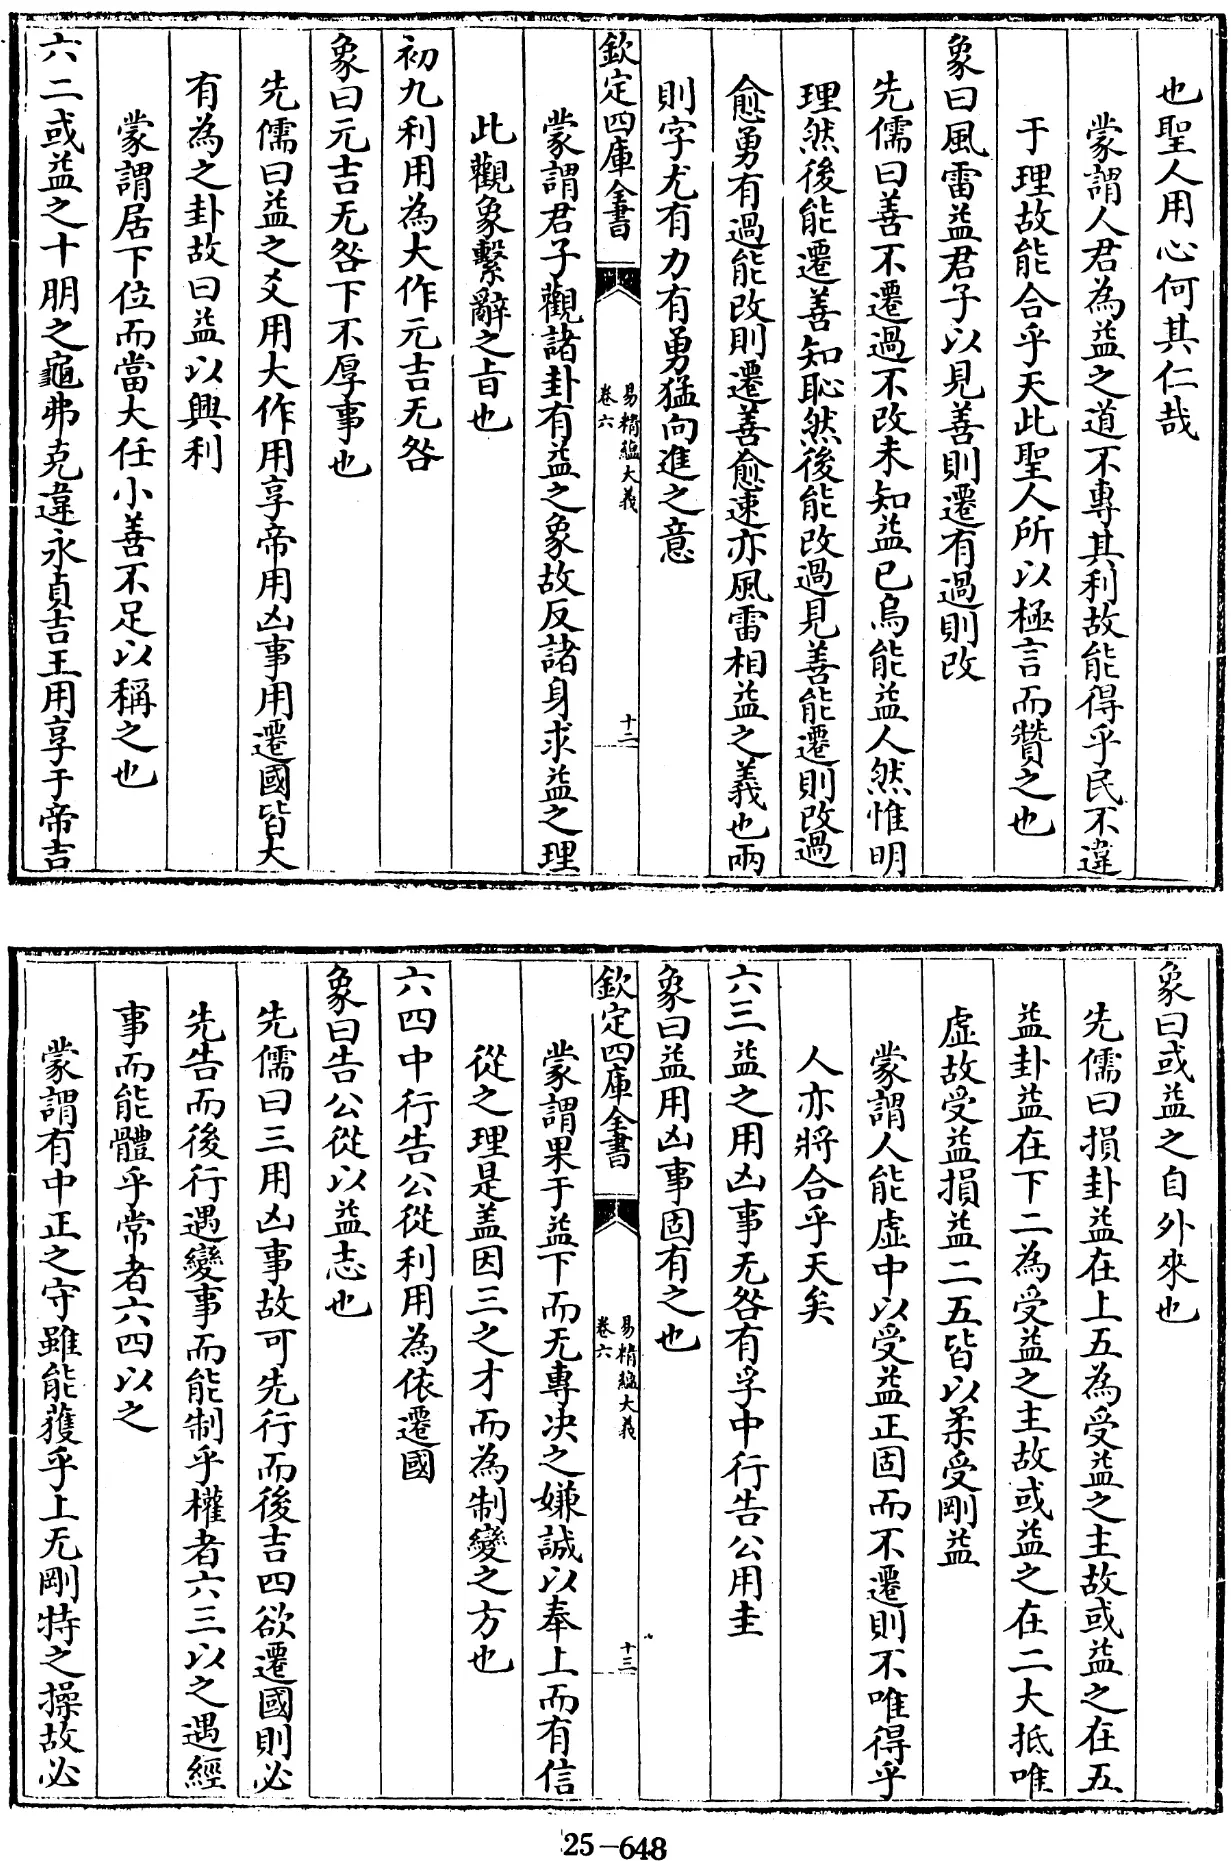 也聖人用心何其仁哉
蒙謂人君為益之道不專其利故能得乎民不違
于理故能合乎天此聖人所以極言而贊之也
象曰風雷益君子以見善則遷有過則改
先儒曰善不遷過不改未知益已烏能益人然惟明
理然後能遷善知恥然後能改過見善能遷則改過
愈勇有過能改則遷善愈速亦風雷相益之義也兩
則字尤有力有勇猛向進之意
欽定四庫全書
易精蘊大義
卷六
十二
蒙謂君子觀諸卦有益之象故反諸身求益之理
此觀象繫辭之旨也
初九利用為大作元吉无咎
象曰元吉无咎下不厚事也
先儒曰益之爻用大作用享帝用凶事用遷國皆大
有為之卦故曰益以興利
蒙謂居下位而當大任小善不足以稱之也
六二或益之十朋之龜弗克違永貞吉王用享于帝吉
象曰或益之自外來也
先儒曰損卦益在上五為受益之主故或益之在五
益卦益在下二為受益之主故或益之在二大抵唯
虛故受益損益二五皆以柔受剛益
蒙謂人能虛中以受益正固而不遷則不唯得乎
人亦將合乎天矣
六三益之用凶事无咎有孚中行告公用圭
象曰益用凶事固有之也
欽定四庫全書
易精蘊大義
卷六
十三
蒙謂果于益下而无專决之嫌誠以奉上而有信
從之理是盖因三之才而為制變之方也
六四中行告公從利用為依遷國
象曰告公從以益志也
先儒曰三用凶事故可先行而後吉四欲遷國則必
先告而後行遇變事而能制乎權者六三以之遇經
事而能體乎常者六四以之
蒙謂有中正之守雖能獲乎上无剛特之操故必
25-648